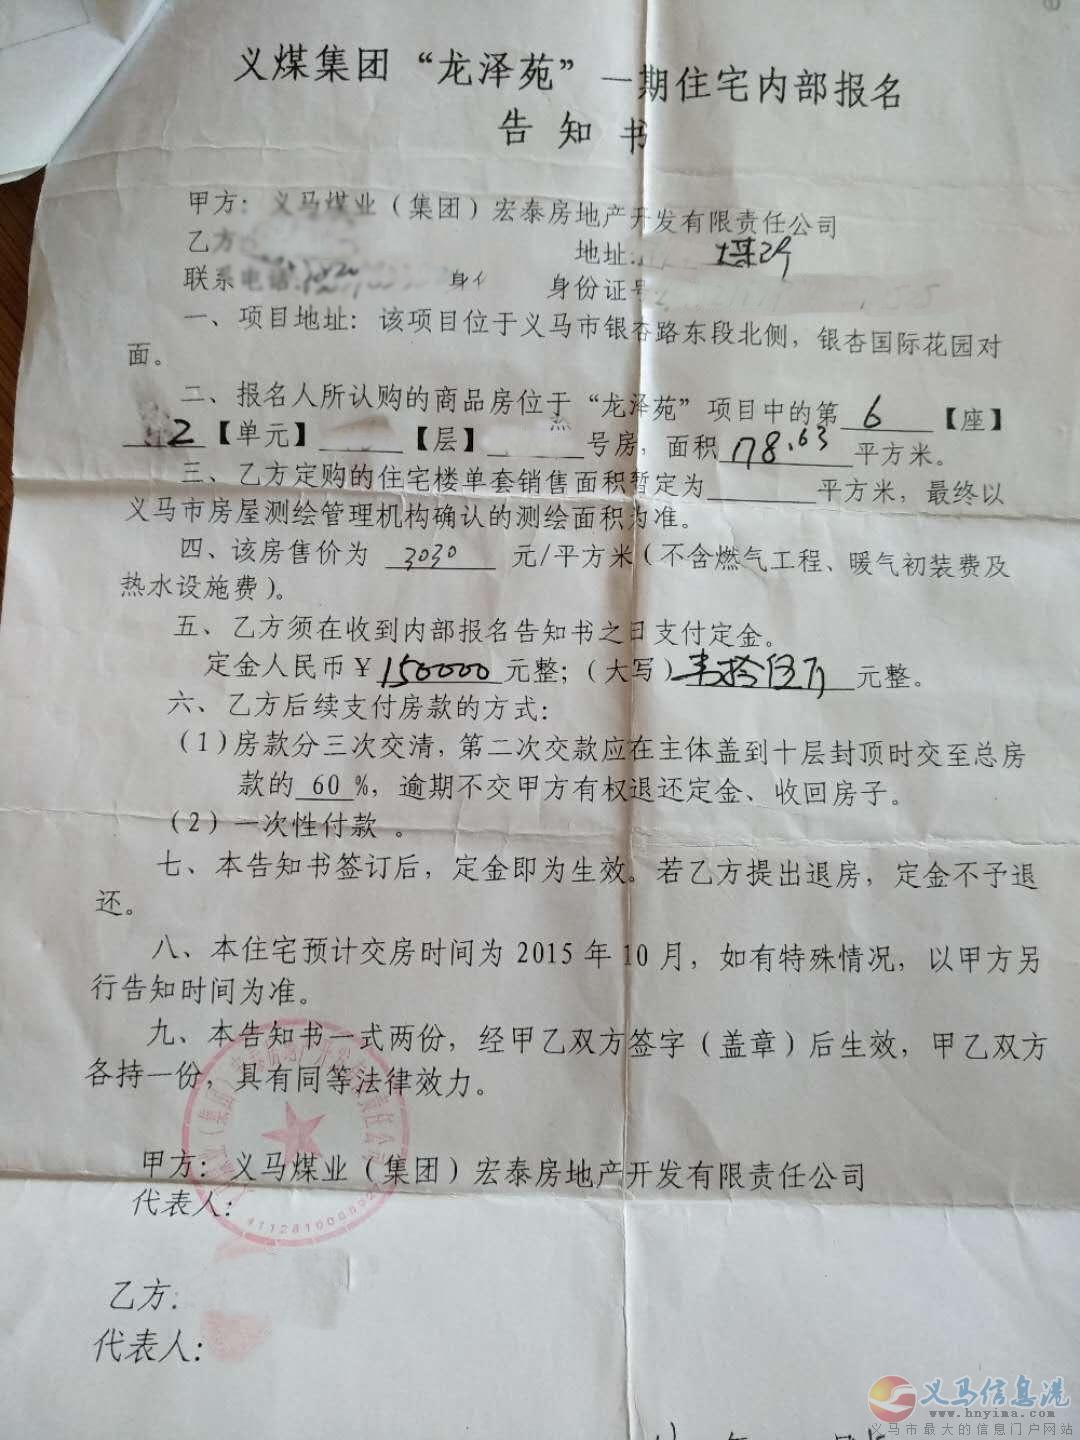 义煤集团“龙泽苑”一期住宅内部报名
告知书
甲方：义马煤业（集团）宏泰房地产开发有限责任公司
乙方 地址：
联系电话： 身份 身份证号
一、项目地址：该项目位于义马市银杏路东段北侧，银杏国际花园对
面。
二、报名人所认购的商品房位于“龙泽苑”项目中的第 6 【座】
2【单元】 【层】 号房，面积178.63平方米。
三、乙方定购的住宅楼单套销售面积暂定为 平方米，最终以
义马市房屋测绘管理机构确认的测绘面积为准。
四、该房售价为 3030 元/平方米（不含燃气工程、暖气初装费及
热水设施费）。
五、乙方须在收到内部报名告知书之日支付定金。
定金人民币￥150000元整；（大写） 拾伍万 元整。
六、乙方后续支付房款的方式：
（1）房款分三次交清，第二次交款应在主体盖到十层封顶时交至总房
款的 60 %，逾期不交甲方有权退还定金、收回房子。
（2）一次性付款 。
七、本告知书签订后，定金即为生效。若乙方提出退房，定金不予退
还。
八、本住宅预计交房时间为 2015 年 10 月，如有特殊情况，以甲方另
行告知时间为准。
九、本告知书一式两份，经甲乙双方签字（盖章）后生效，甲乙双方
各持一份，具有同等法律效力。
甲方：义马煤业（集团）宏泰房地产开发有限责任公司
代表人：
乙方：
代表人：
义马信息港
www.hnyima.com
义马市最大的信息门户网站